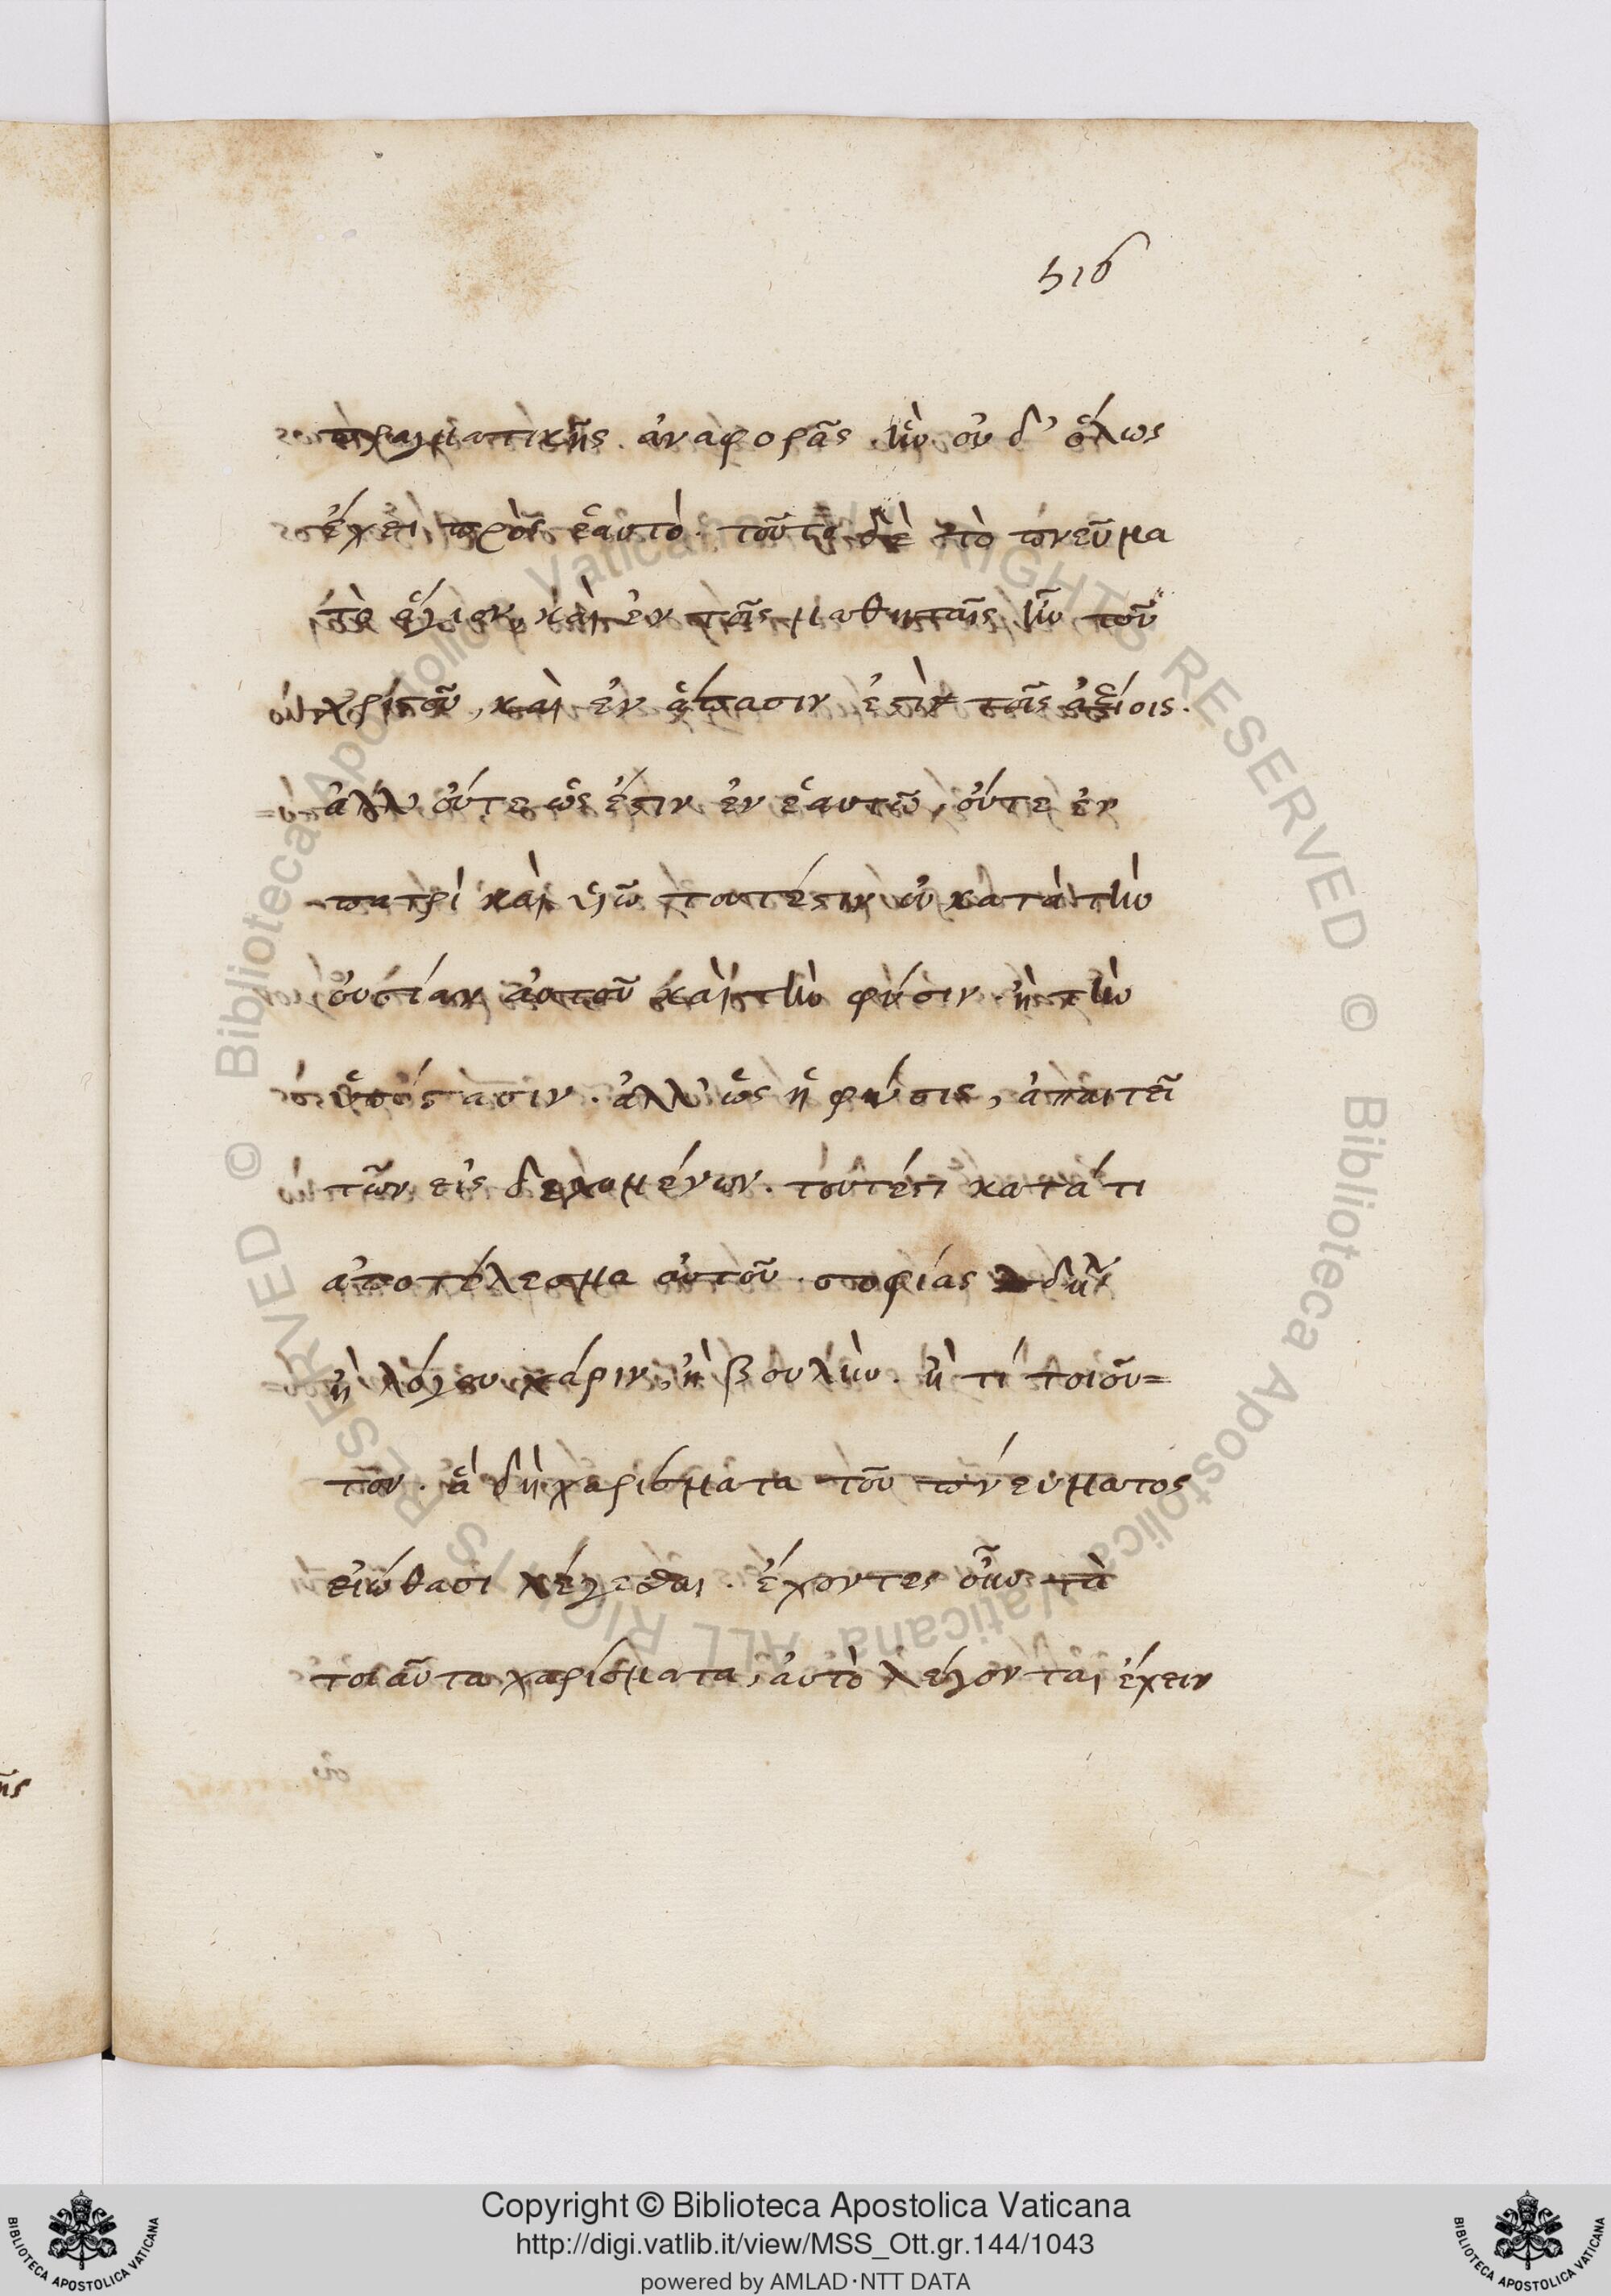 516
πραγματικῆς ἀναφορᾶς ἣν οὐδ' ὅλως
ἔχει πρὸς ἑαυτό. τοῦτο δὲ τὸ πνεῦμα
τὸ ἅγιον, καὶ ἐν τοῖς μαθηταῖς ἦν τοῦ
χριστοῦ, καὶ ἐν ἅπασιν ἐστὶν τοῖς ἀξίοις.
ἀλλ' οὔτε ὡς ἔστιν ἐν ἑαυτῶ, οὔτε ἐν
πατρὶ καὶ υἱῶ τουτέστιν οὐ κατὰ τὴν
οὐσίαν αὐτοῦ καὶ τὴν φύσιν. ἢ τὴν
ὑπόστασιν. ἀλλ' ὡς ἡ φύσις, ἀπαιτεῖ
τῶν εἰσδεχομένων. τουτέστι κατά τι
ἀποτέλεσμα αὐτοῦ. σοφίας δηλ
ἢ λόγου χάριν, ἢ βουλὴν. ἤ τι τοιοῦ=
τον. ἃ δὴ χαρίσματα τοῦ πνεύματος
εἰώθασι λέγεσθαι. ἔχοντες οὖν τὰ
τοιαῦτα χαρίσματα, αὐτὸ λέγονται ἔχειν
ῆς
Copyright © Biblioteca Apostolica Vaticana
http://digi.vatlib.it/view/MSS_Ott.gr.144/1043
powered by AMLAD·NTT DATA
BIBLIOTECA APOSTOLICA VATICANA
BIBLIOTECA APOSTOLICA VATICANA
© Biblioteca Apostolica Vaticana ALL RIGHTS RESERVED © Biblioteca Apostolica Vaticana ALL RIGHTS RESERVED